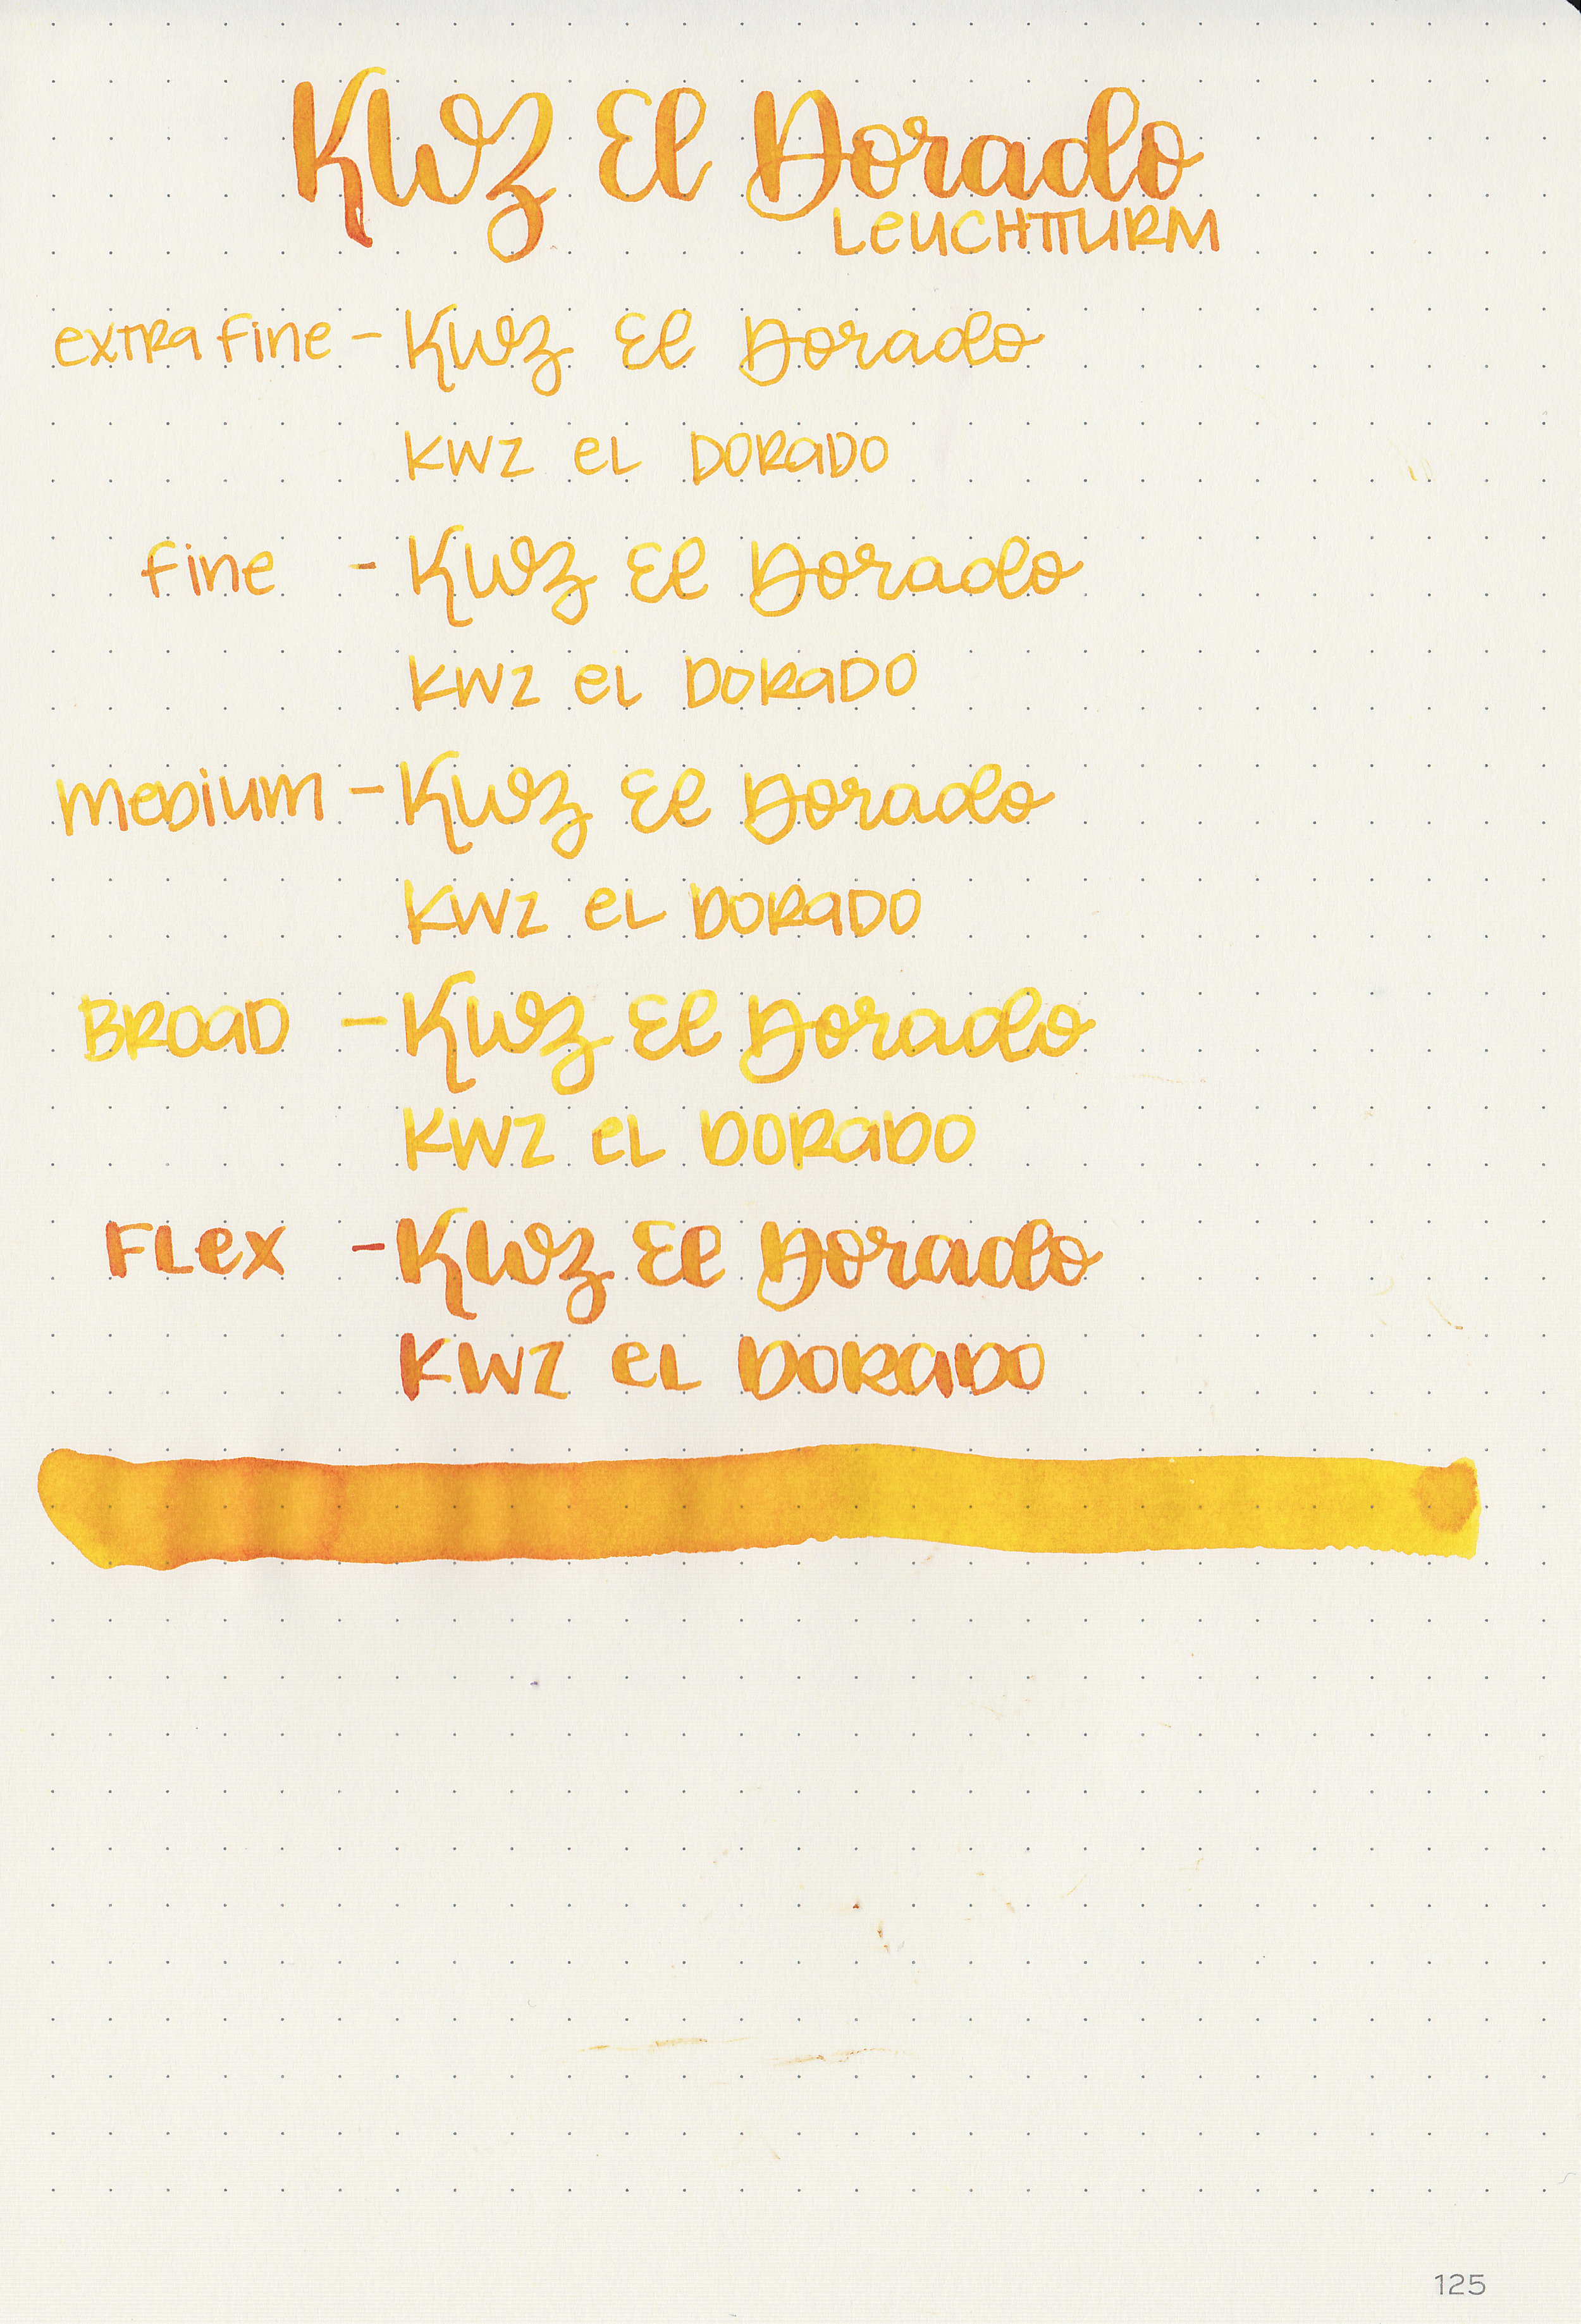 KWZ El Dorado
LEUCHTTURM
extra fine - KWZ El Dorado
KWZ eL DORaDO
fine - KWZ El Dorado
KWZ eL DORaDO
meDium - KWZ El Dorado
KWZ eL DORaDO
BROaD - KWZ El Dorado
KWZ eL DORaDO
FLex - KWZ El Dorado
KWZ eL DORaDO
125